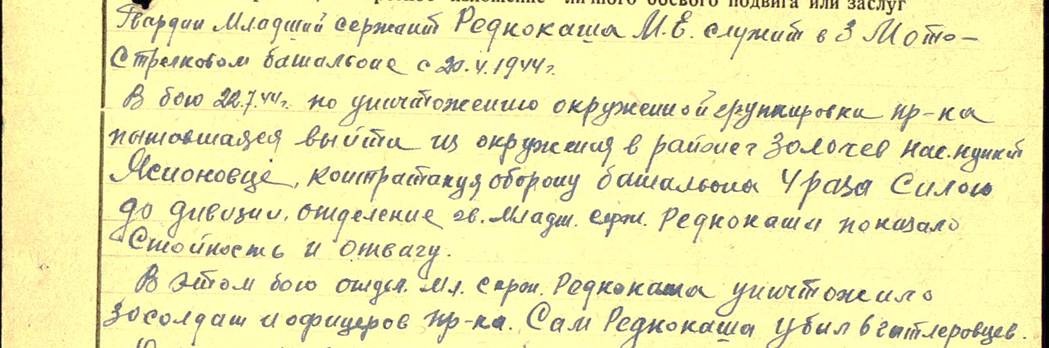 краткое изложение личного боевого подвига или заслуг
Гвардии Младший сержант Реднокаша М.Е. служит в 3 Мото-
стрелковом батальоне с 20.4.1944г.
В бою 22.7.44г. по уничтожению окруженной группировки пр-ка
пытавшаяся выйти из окружения в районе г Золочев нас. пункт
Ясионовце, контратакуя оборону батальона 4 раза Силою
до дивизии, отделение гв. младш. серж. Реднокаши показало
Стойкость и отвагу.
В этом бою отдел. мл. серж. Реднокаша уничтожило
30 солдат и офицеров пр-ка. Сам Реднокаша убил 6 гитлеровцев.